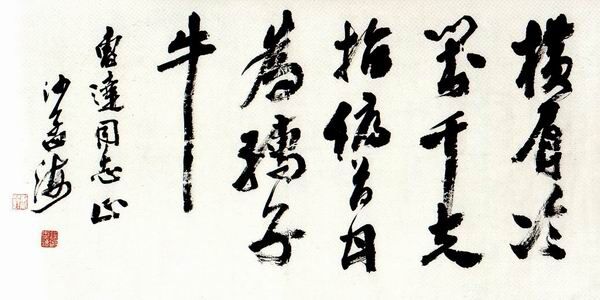 橫眉冷
對千夫
指俯首甘
為孺子
牛
達同志正
沙孟海